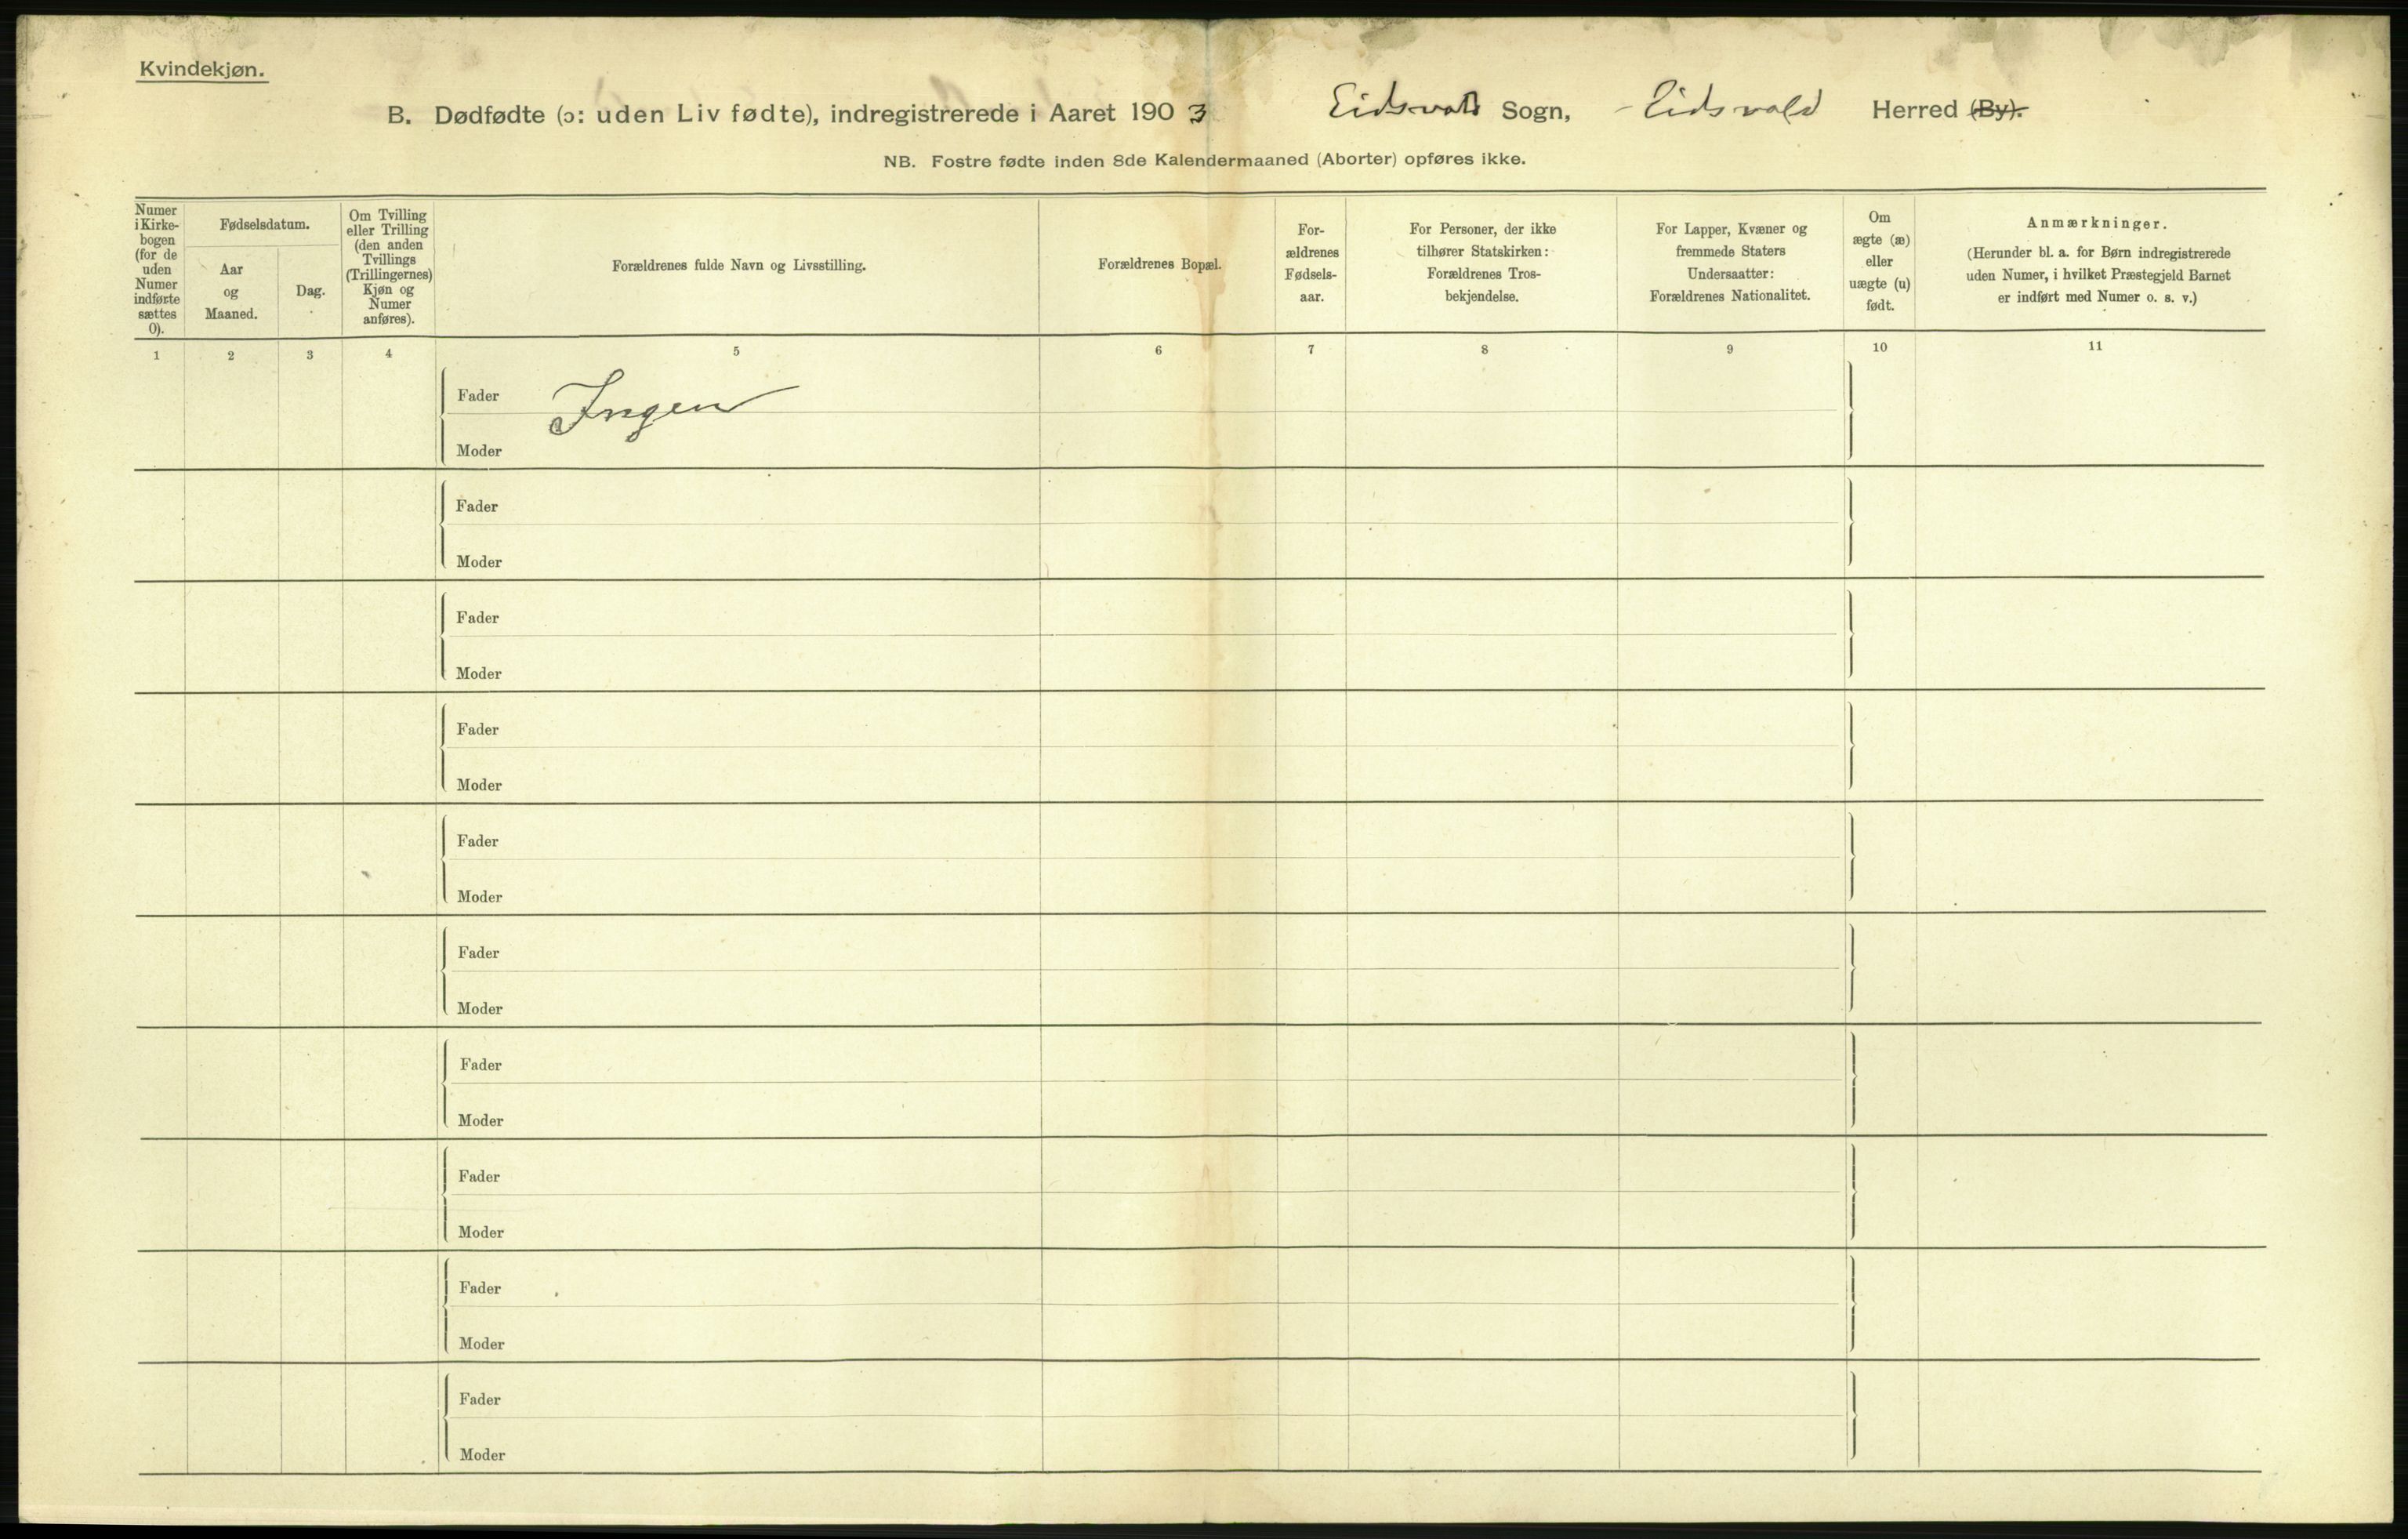 Kvindekjøn.
B. Dødfødte (ɔ: uden Liv fødte), indregistrerede i Aaret 1903 Eidsvold Sogn, Eidsvold Herred (By).
NB. Fostre fødte inden 8de Kalendermaaned (Aborter) opføres ikke.
Numer
i Kirke-
bogen
(for de
uden
Numer
indførte
sættes
0).
Fødselsdatum.
Aar
og
Maaned.
Dag.
Om Tvilling
eller Trilling
(den anden
Tvillings
(Trillingernes)
Kjøn og
Numer
anføres).
Forældrenes fulde Navn og Livsstilling.
Forældrenes Bopæl.
For-
ældrenes
Fødsels-
aar.
For Personer, der ikke
tilhører Statskirken:
Forældrenes Tros-
bekjendelse.
For Lapper, Kvæner og
fremmede Staters
Undersaatter:
Forældrenes Nationalitet.
Om
ægte (æ)
eller
uægte (u)
født.
Anmærkninger.
(Herunder bl. a. for Børn indregistrerede
uden Numer, i hvilket Præstegjeld Barnet
er indført med Numer o. s. v.)
1 2 3 4 5 6 7 8 9 10 11
Fader Ingen
Moder
Fader
Moder
Fader
Moder
Fader
Moder
Fader
Moder
Fader
Moder
Fader
Moder
Fader
Moder
Fader
Moder
Fader
Moder